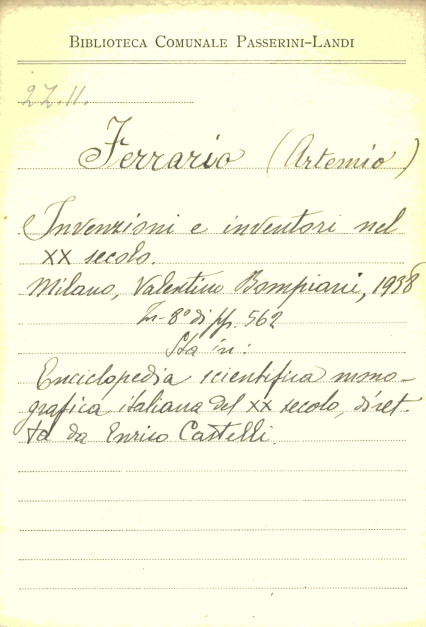 BIBLIOTECA COMUNALE PASSERINI-LANDI
2Z.11.
Ferrario (Artemio)
Invenzioni e inventori nel
XX secolo.
Milano, Valentino Bompiani, 1938
In-8° di pp. 562
Sta in:
Enciclopedia scientifica mono-
grafica italiana del XX secolo, diret-
ta da Enrico Castelli.